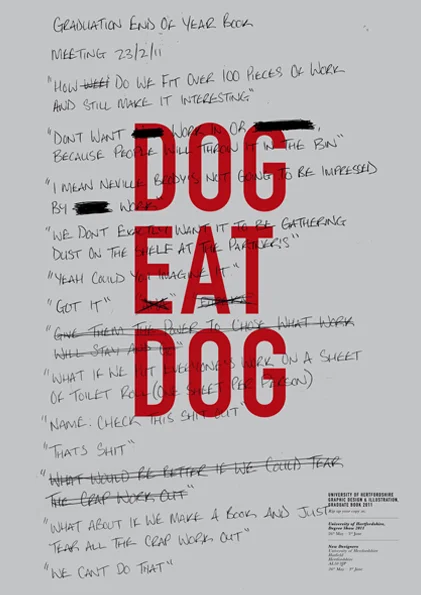 GRADUATION END OF YEAR BOOK
MEETING 23/2/11
"HOW WELL DO WE FIT OVER 100 PIECES OF WORK
AND STILL MAKE IT INTERESTING"
"DONT WANT WORK IN OR ,
BECAUSE PEOPLE WILL THROW IT IN THE BIN"
"I MEAN NEVILLE BRODY'S NOT GOING TO BE IMPRESSED
BY WORK"
"WE DONT EXACTLY WANT IT TO BE GATHERING
DUST ON THE SHELF AT THE PARTNERS"
"YEAH COULD YOU IMAGINE IT"
"GOT IT"
"GIVE THEM THE POWER TO CHOSE WHAT WORK
WILL STAY AND GO"
"WHAT IF WE PUT EVERYONE'S WORK ON A SHEET
OF TOILET ROLL (ONE SHEET PER PERSON)
"NAME: CHECK THIS SHIT OUT"
"THATS SHIT"
"WHAT WOULD BE BETTER IF WE COULD TEAR
THE CRAP WORK OUT"
"WHAT ABOUT IF WE MAKE A BOOK AND JUST
TEAR ALL THE CRAP WORK OUT"
"WE CAN'T DO THAT"
DOG
EAT
DOG
UNIVERSITY OF HERTFORDSHIRE
GRAPHIC DESIGN & ILLUSTRATION,
GRADUATE BOOK 2011
Rip up your copy at:
University of Hertfordshire,
Degree Show 2011
New Designers
University of Hertfordshire
Hatfield
Hertfordshire